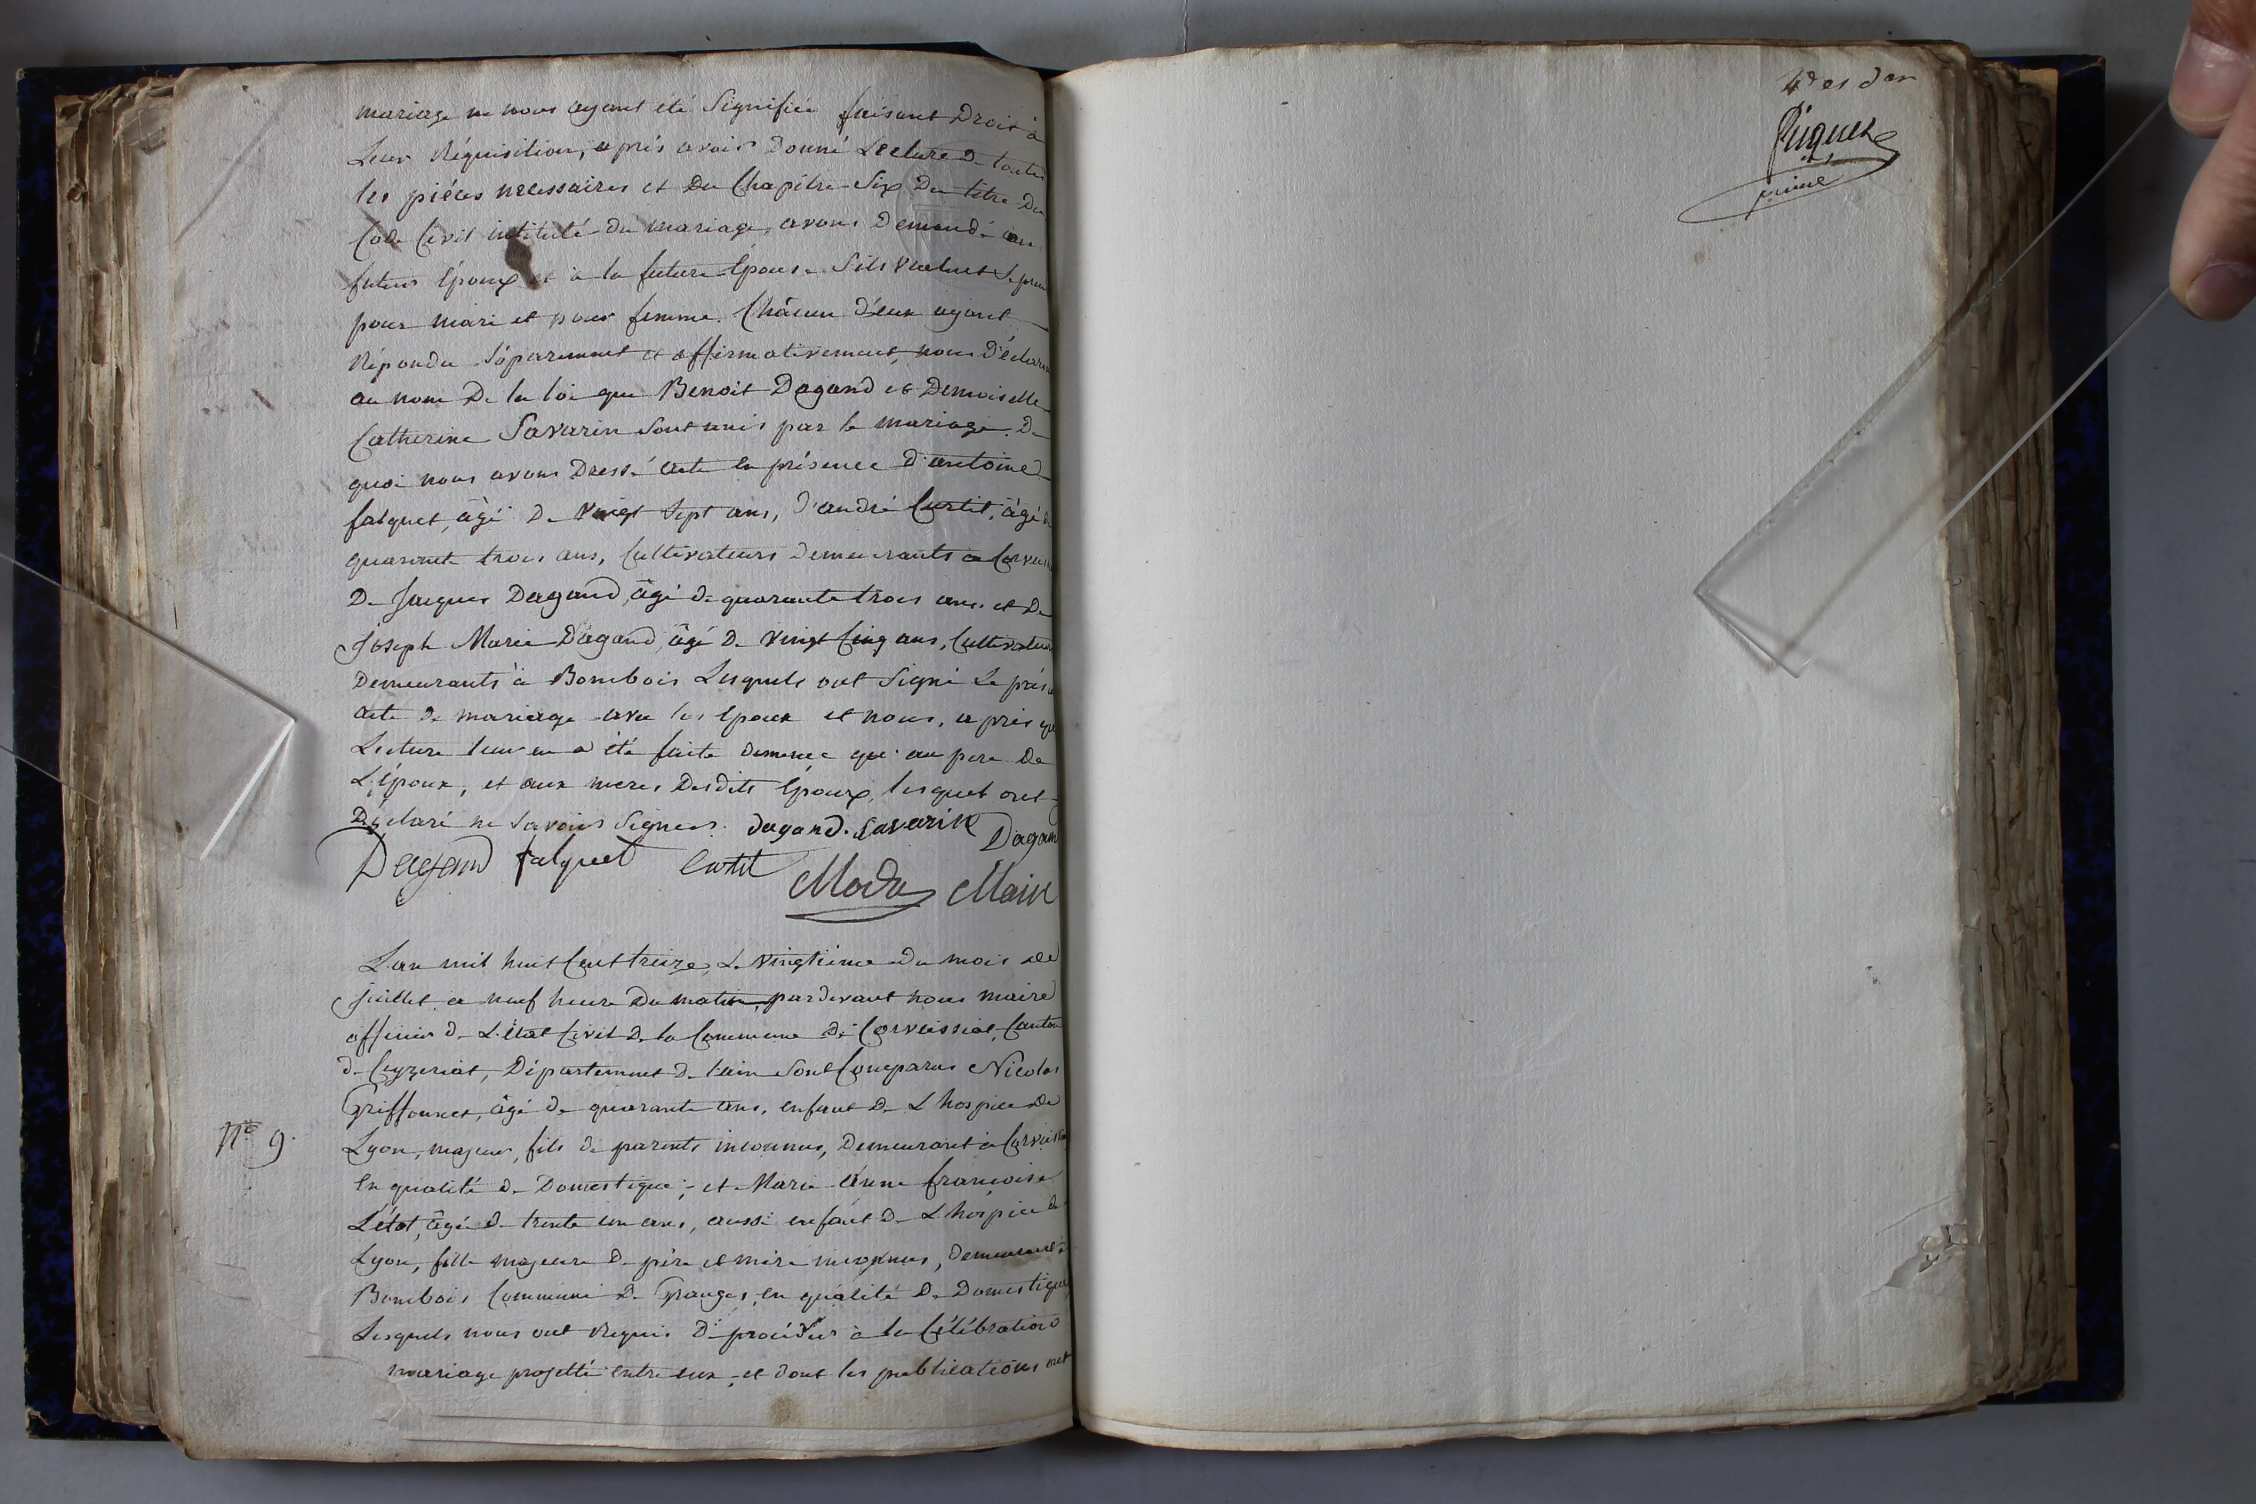 mariage ne nous ayant été Signifiée faisant Droit à
Leur Réquisition, après avoir Donné Lecture De toutes
les pièces nécessaires et Du Chapitre Six Du titre Du
Code Civil intitulé du mariage, avons Demandé au
futur Époux et à la future Épouse S'ils veulent Se pren
pour mari et pour femme. Châcun D'eux ayant
Répondu Séparement et affirmativement, nous Déclaron
au nom De la loi que Benoit Dagand et Demoiselle
Catherine Savarin Sont unis par le mariage. De
quoi nous avons Dressé acte en présence D'antoine
falquet, âgé De vingt Sept ans, D'andré Curtil, âgé de
quarante trois ans, Cultivateurs demeurants à Corveiss
De Jacques Dagand, âgé de quarante trois ans et De
Joseph Marie Dagand, âgé De vingt Cinq ans, Cultivateurs
Demeurants à Bombois Lesquels ont Signé Le présen
acte de mariage avec les Époux et nous, après que
Lecture leur en a été faite demême que au pere De
L'époux, et aux meres Desdits Époux, lesquels ont
Déclaré ne Savoir Signer. dagand. Savarin Dagand
Dagand falquet Curtil
Moda Maire
L'an mil huit Cent treize, Le vingtième du mois de
Juillet à neuf heure Du matin, pardevant nous maire
officier de L'état Civil De la Commune De Corveissiat, Canton
de Ceyzeriat, Département de l'ain Sont Comparus Nicolas
Griffonnet, âgé de quarante ans, enfant De L'hospice De
N° 9.
Lyon, majeur, fils de parents inconnus, Demeurant à Corveissiat
En qualité de Domestique; et Marie Anne françoise
L'état, âgé de trente un ans, aussi enfant De L'hospice de
Lyon, fille majeure De père et mère inconnus, demeurant à
Bombois Commune De Granges, en qualité De Domestique
Lesquels nous ont Requis De procéder à la Célébration
mariage projetté entre eux, et dont les publications ont
4e et der
Piquet